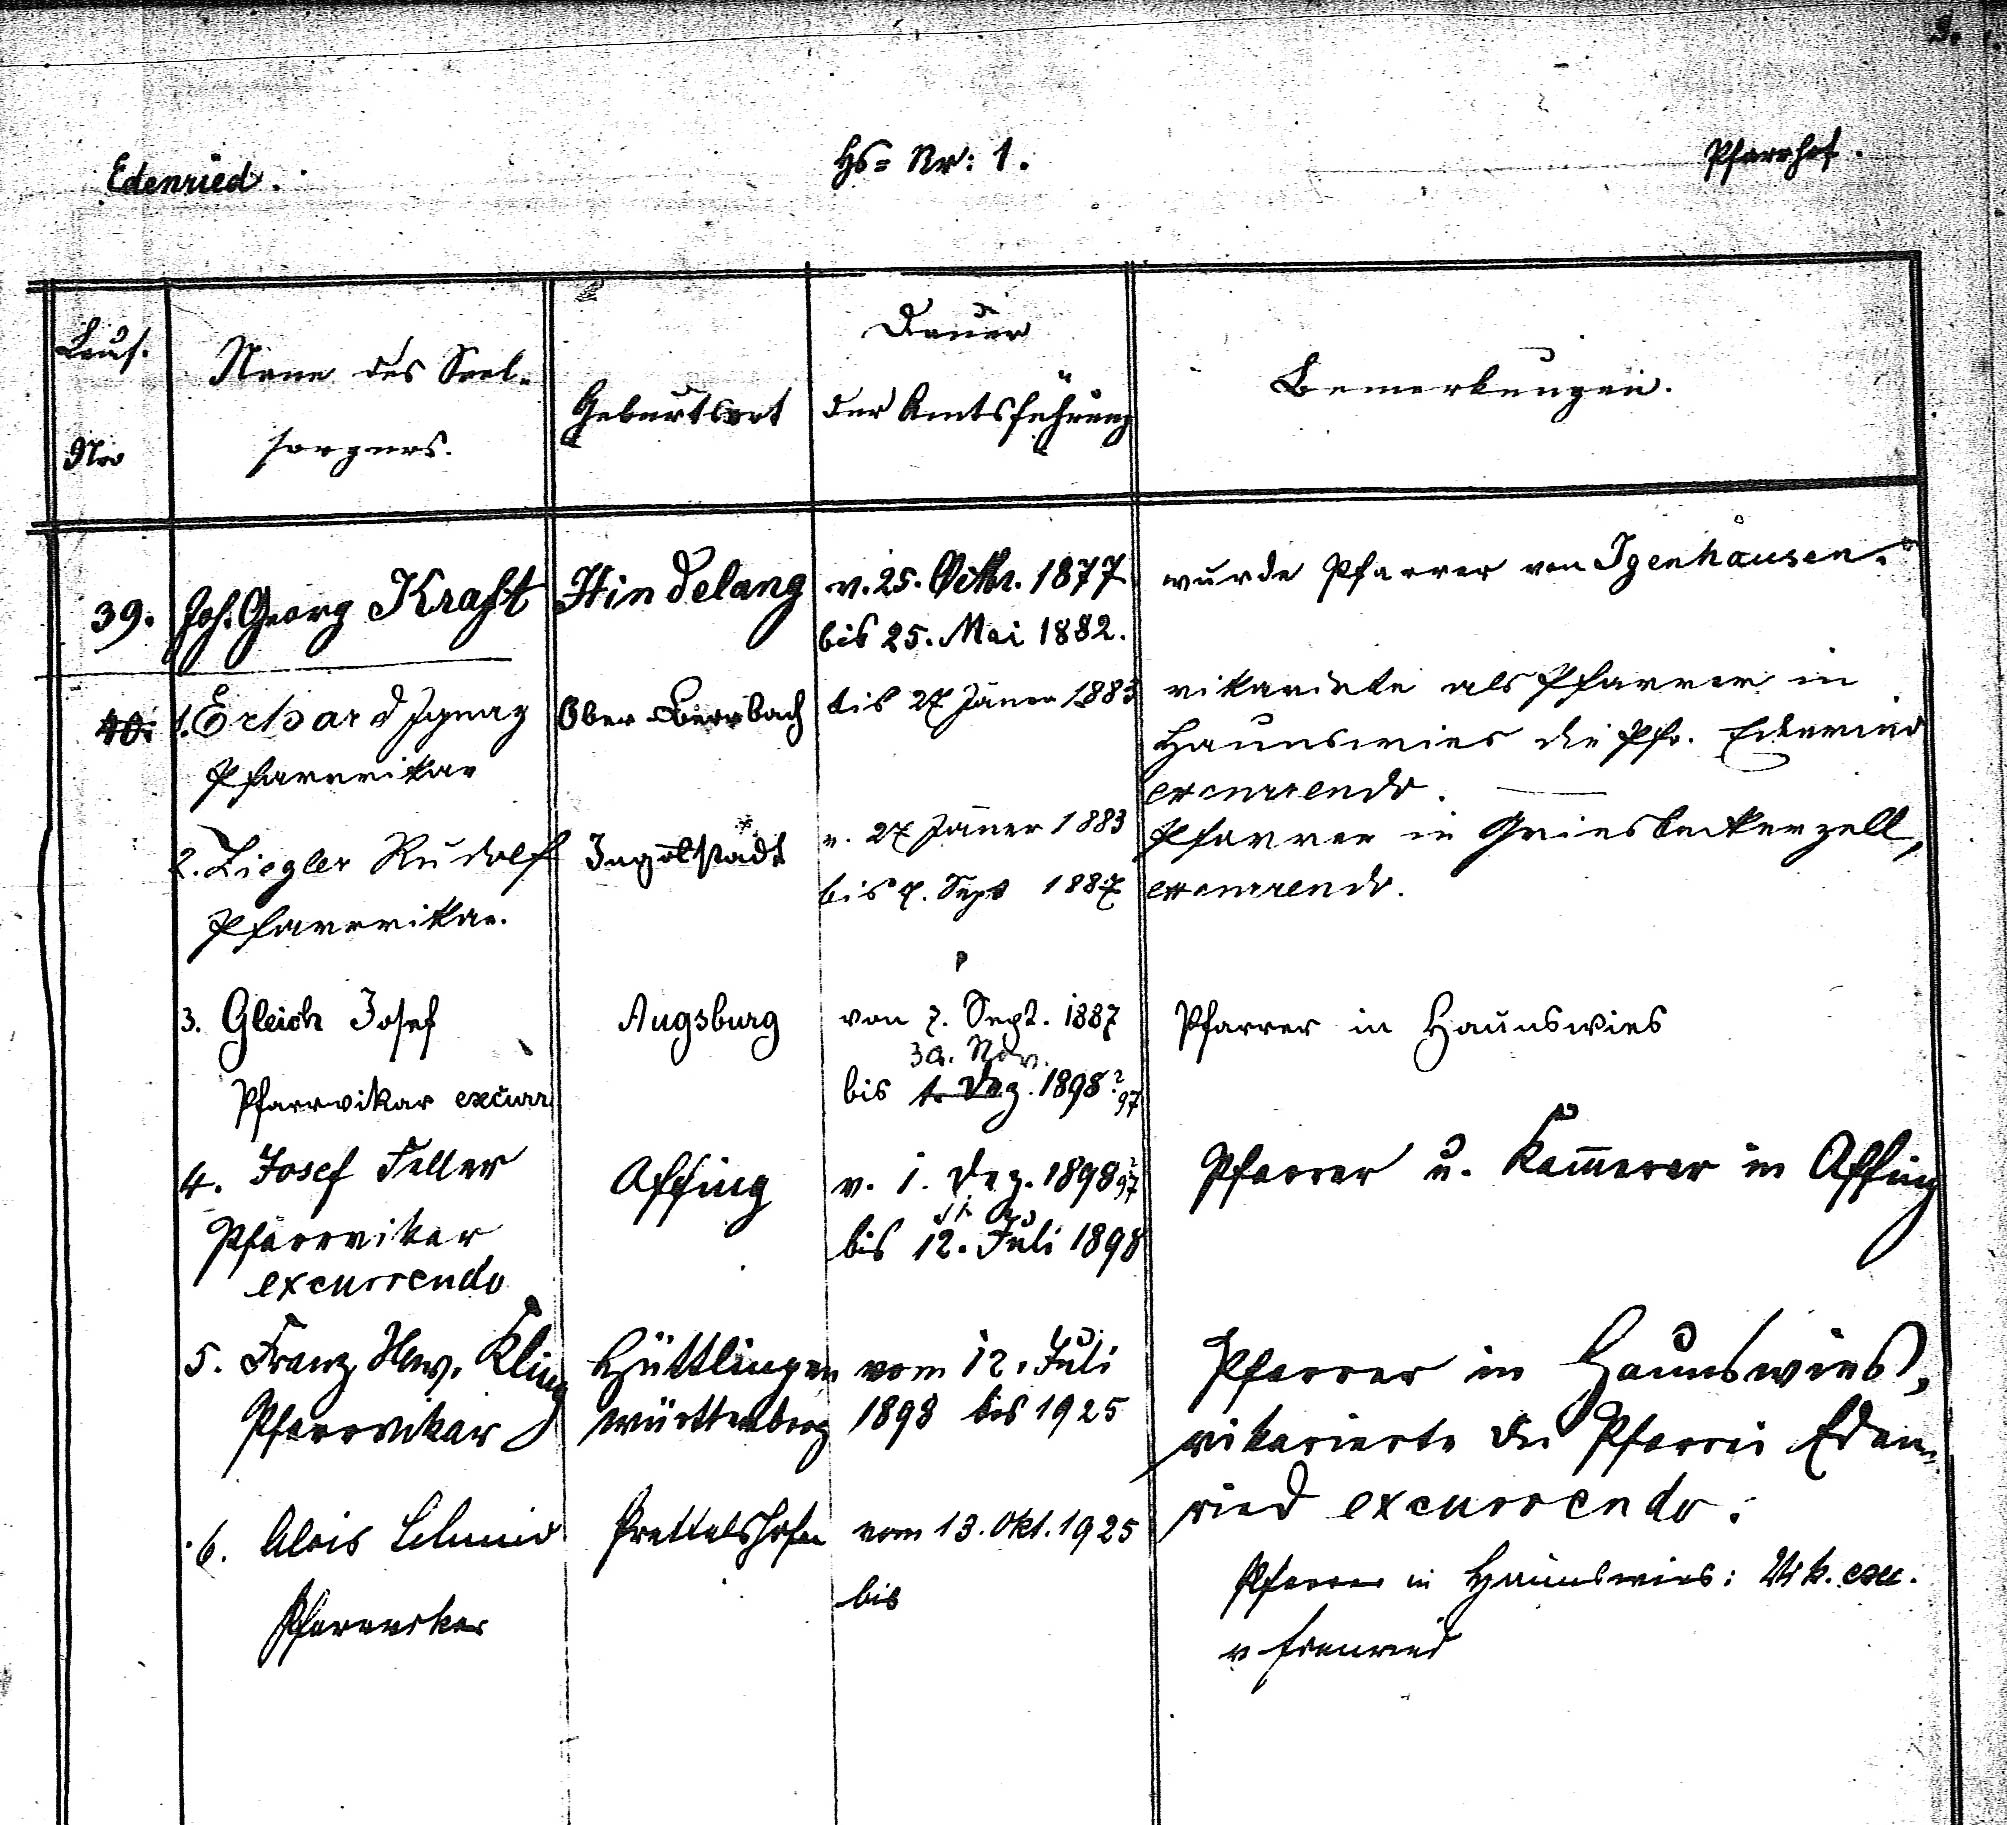 9.
Edenried.
Hs= Nr: 1.
Pfarrhof.
Lauf.
Nro
Name des Seel-
sorgers.
Geburtsort
Dauer
der Amtsführung
Bemerkungen.
39. Joh. Georg Kraft Hindelang v. 25. Oktbr. 1877 wurde Pfarrer von Igenhausen.
bis 25. Mai 1882.
40. 1. Erhard Ignaz Ober-Bernbach bis 27 Jäner 1883 vikarirte als Pfarrer in
Pfarrvikar Haunswies die Pfr. Edenried
excurrendo.
2. Ziegler Rudolf Ingolstadt v. 27 Jäner 1883 Pfarrer in Griesbeckerzell,
Pfarrvikar. bis 7. Sept 1887 excurrendo.
3. Gleich Josef Augsburg von 7. Sept. 1887 Pfarrer in Haunswies
30. Nov.
Pfarrvikar excurr bis 1. Dez. 1898 ? 97
4. Josef Feller Affing v. 1. Dez. 1898 ? 97 Pfarrer u. Kammerer in Affing
Pfarrvikar bis 12. Juli 1898
excurrendo
5. Franz Kling Hüttlingen vom 12. Juli Pfarrer in Haunswies,
Pfarrvikar Württemberg 1898 bis 1925 vikarierte die Pfarrei Eden-
ried excurrendo.
6. Alois Schmid Prettelshofen vom 13. Okt. 1925
Pfarrer in Haunswies: Vik. exc.
Pfarrvikar bis
v Edenried